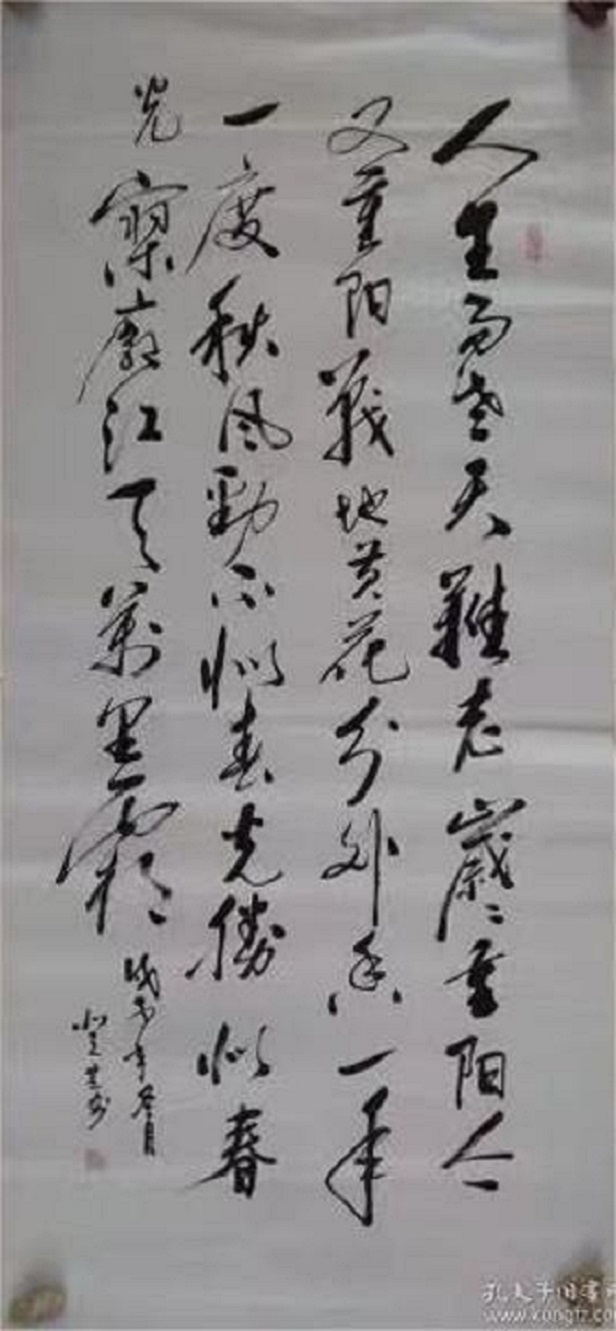 人生易老天難老歲〻重阳今
又重阳戰地黄花分外香一年
一度秋风勁不似春光勝似春
光寥廓江天萬里霜
戊子年冬月
孔夫子旧书
www.kongfz.c